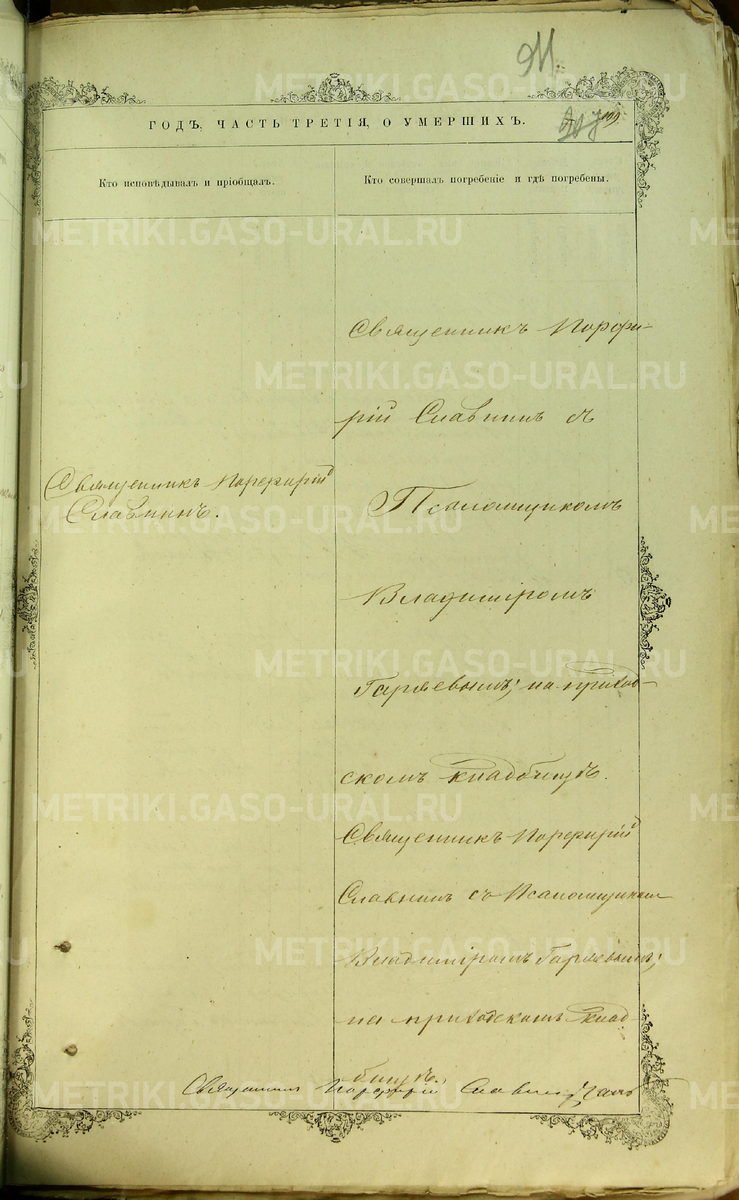 911.
ГОДЪ, ЧАСТЬ ТРЕТІЯ, О УМЕРШИХЪ.
Кто исповѣдывалъ и пріобщалъ.
Кто совершалъ погребеніе и гдѣ погребены.
Священникъ Порфирій
Славнинъ.
Священникъ Порфи-
рій Славнинъ съ
Псаломщикомъ
Владиміромъ
Гаряевымъ; на приход-
скомъ кладбищѣ.
Священникъ Порфирій
Славнинъ съ Псаломщикомъ
Владиміромъ Гаряевымъ;
на приходскомъ клад
бищѣ.
Священникъ Порфирій Славнинъ
METRIKI.GASO-URAL.RU